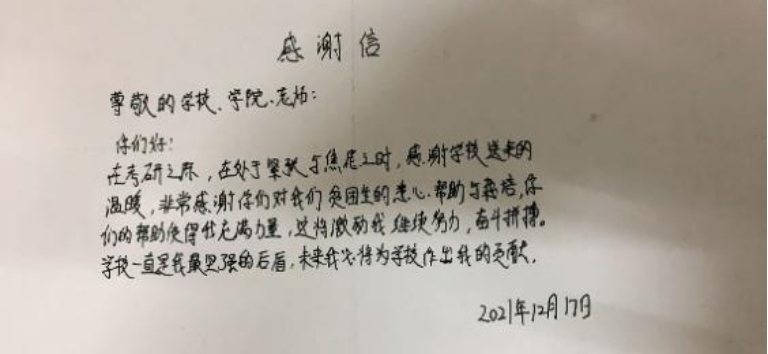 感谢信
尊敬的学校、学院、老师：
你们好：
在考研之际，在处于紧张与焦虑之时，感谢学校送来的
温暖，非常感谢你们对我们贫困生的关心、帮助与栽培，你
们的帮助使得我充满力量，这将激励我继续努力，奋斗拼搏。
学校一直是我最坚强的后盾，未来我必将为学校作出我的贡献。
2021年12月17日